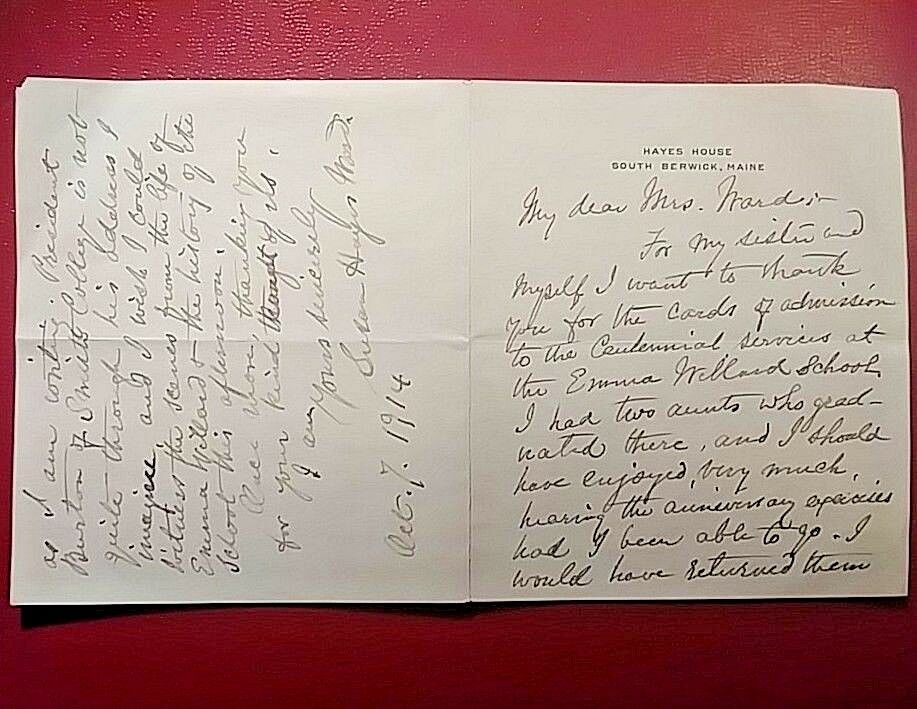 HAYES HOUSE
SOUTH BERWICK, MAINE
My dear Mrs. Ward :-
For my sister and
myself I want to thank
you for the cards of admission
to the Centennial services at
the Emma Willard School.
I had two aunts who grad-
uated there, and I should
have enjoyed, very much,
hearing the anniversary exercises
had I been able to go. I
would have returned them
as I am writing. President
Burton of Smith College is not
quite through his address I
imagine and I wish I could
witness the scenes from the life of
Emma Willard & the history of the
School this afternoon.
Once more, thanking you
for your kind thought of us,
I am
Yours sincerely
Susan Hayes Ward.
Oct. 7. 1914